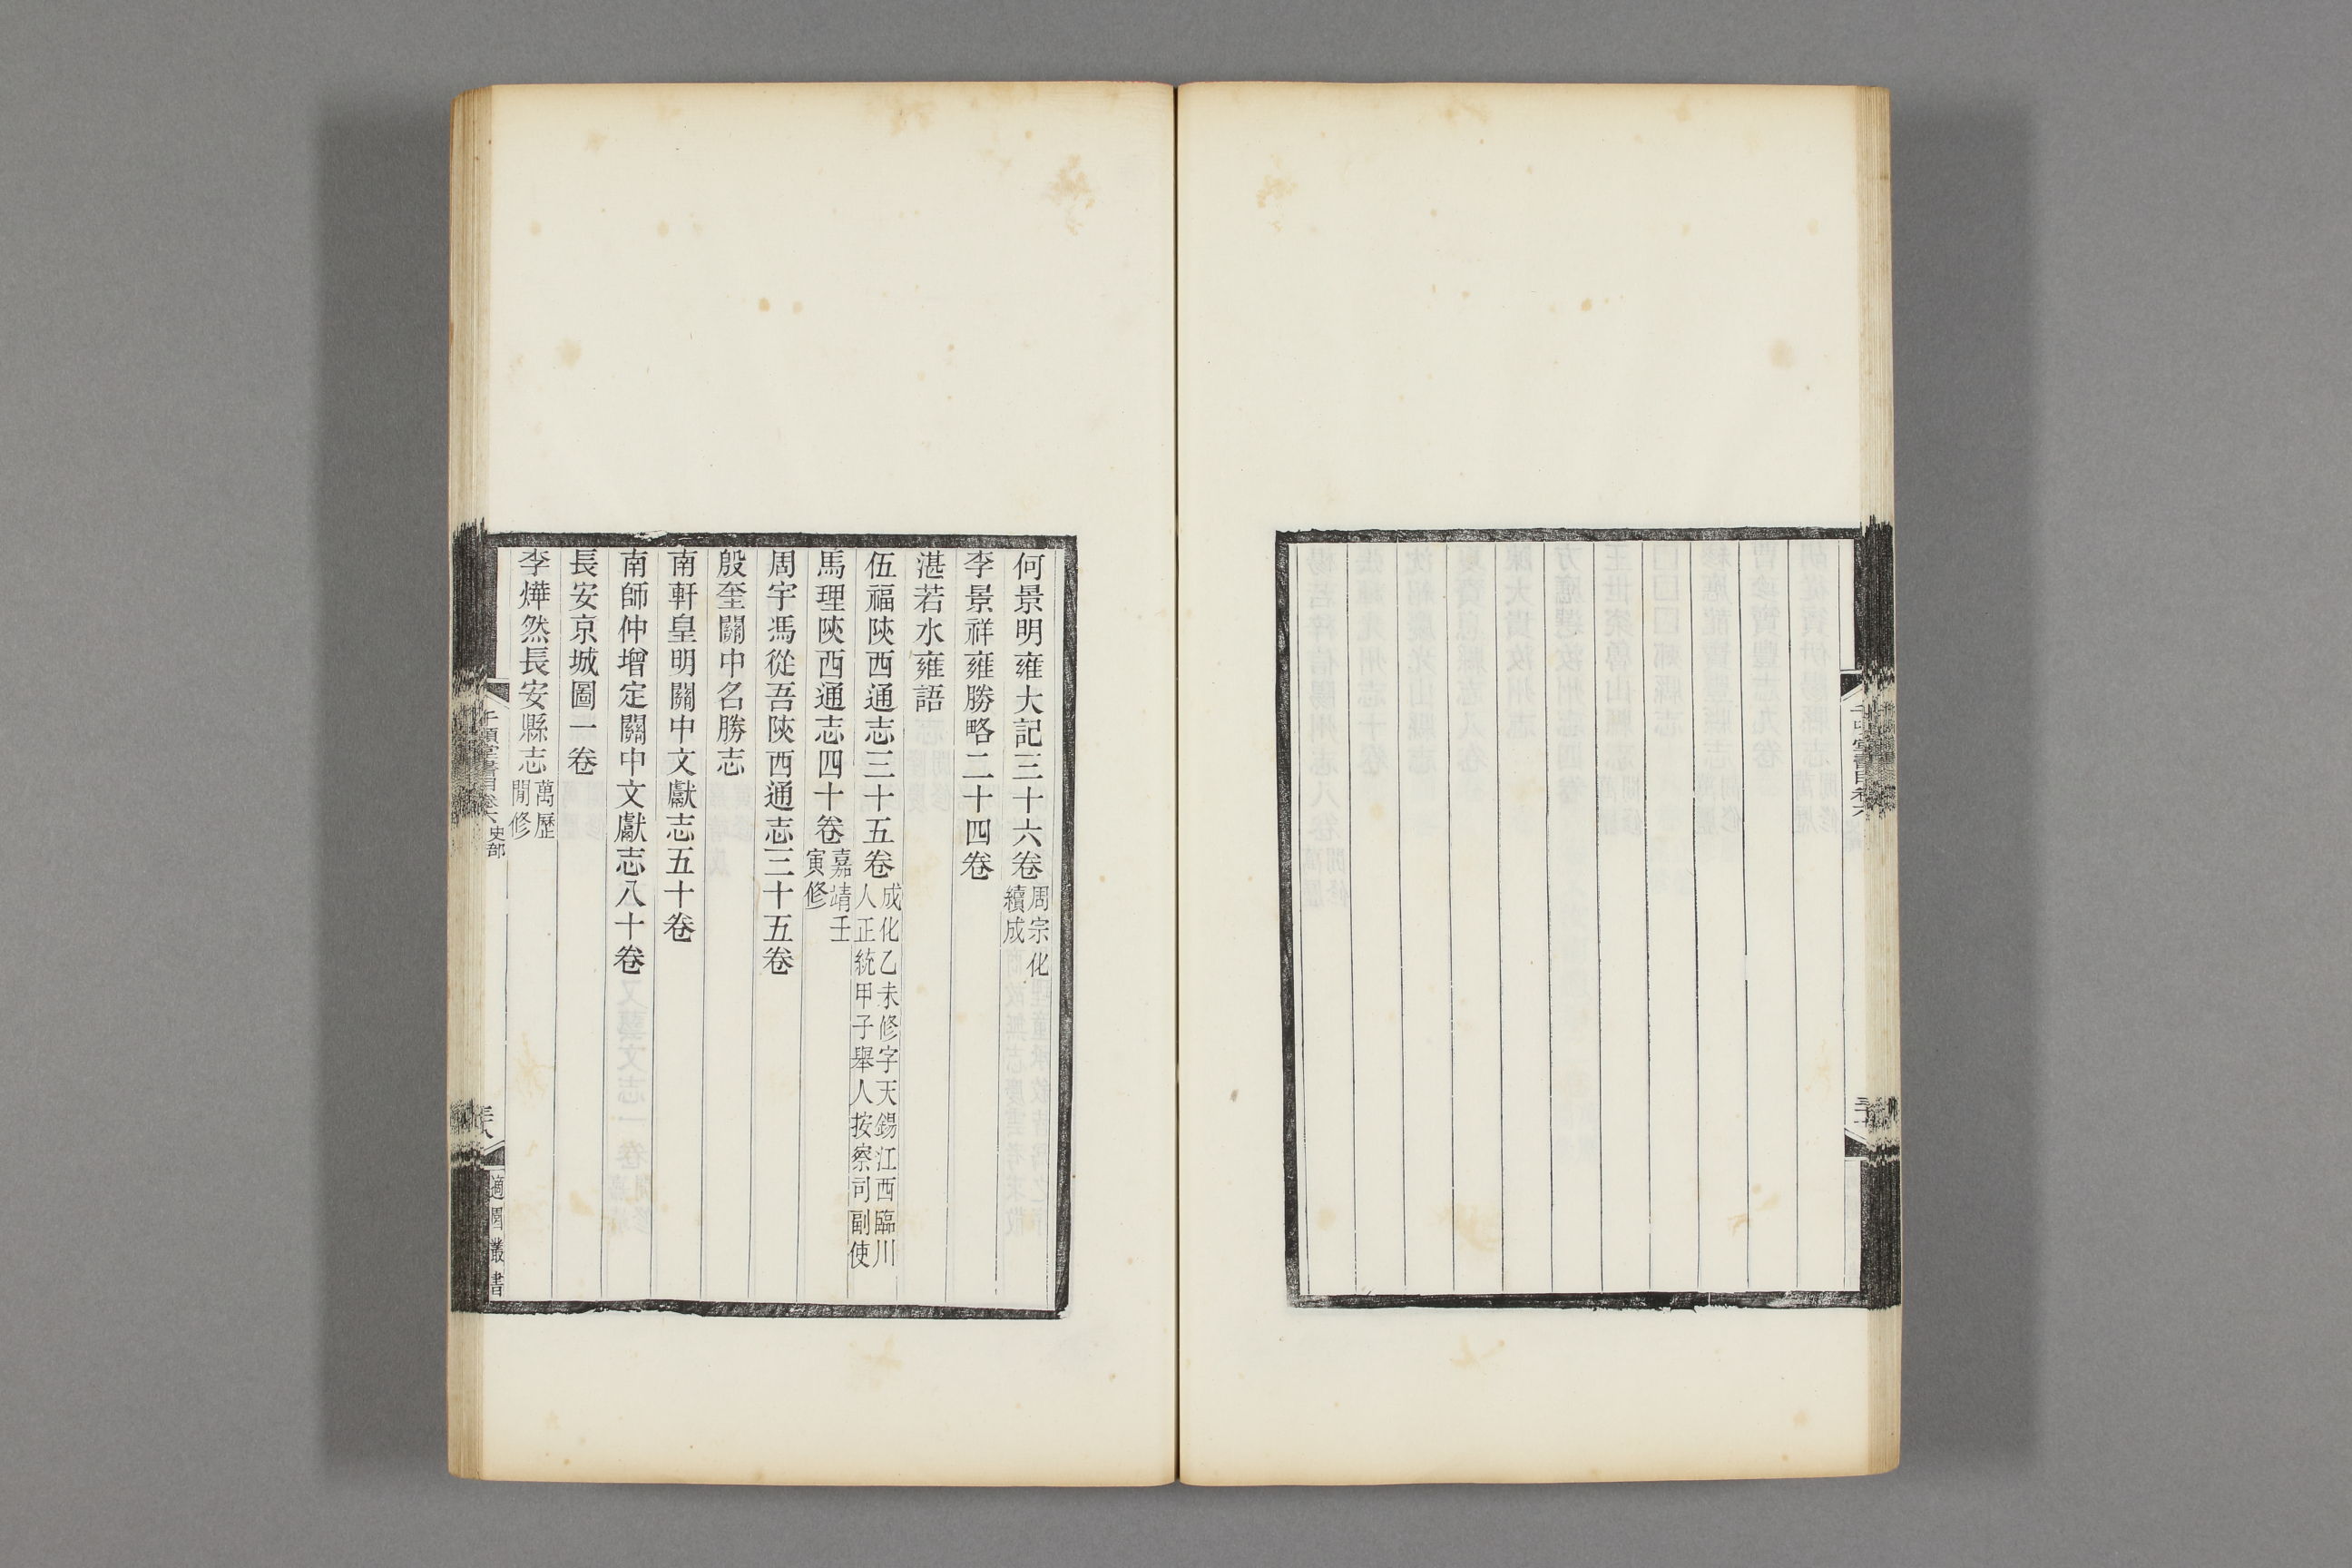 何景明雍大記三十六卷周宗化續成
李景祥雍勝略二十四卷
湛若水雍語
伍福陜西通志三十五卷成化乙未修字天錫江西臨川人正統甲子舉人按察司副使
馬理陜西通志四十卷嘉靖壬寅修
周宇馮從吾陜西通志三十五卷
殷奎關中名勝志
南軒皇明關中文獻志五十卷
南師仲增定關中文獻志八十卷
長安京城圖一卷
李燁然長安縣志萬歷閒修
千頃堂書目卷六史部
適園叢書